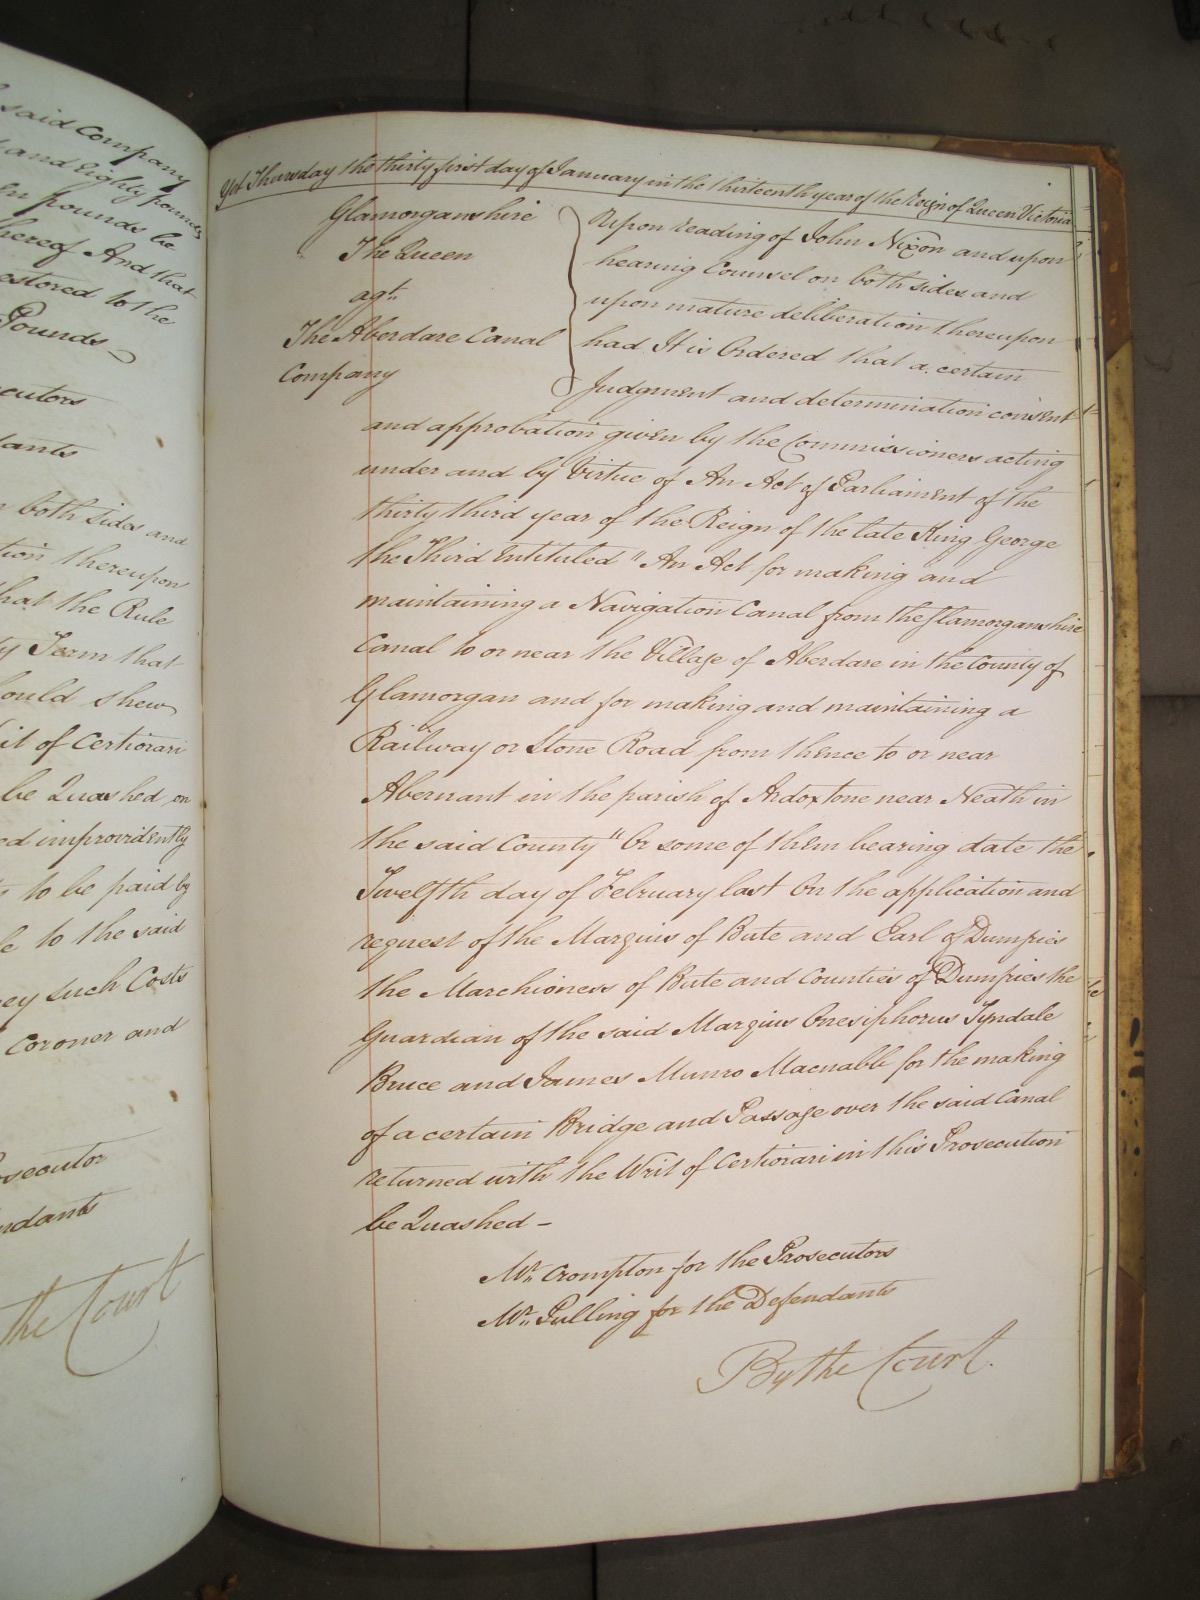 said Company
and Eighty pounds
pounds be
hereof And that
estored to the
Pounds
cutors
dants
both sides and
tion thereupon
hat the Rule
Term that
ould shew
it of Certiorari
be Quashed on
ed improvidently
to be paid by
to the said
such Costs
Coroner and
osecutor
ndants
the Court
Yet Thursday the thirty first day of January in the thirteenth year of the Reign of Queen Victoria
Glamorganshire
The Queen
agt.
The Aberdare Canal
Company
Upon reading of John Nixon and upon
hearing Counsel on both sides and
upon mature deliberation thereupon
had It is Ordered that a certain
Judgment and determination consent
and approbation given by the Commissioners acting
under and by Virtue of An Act of Parliament of the
thirty third year of the Reign of the late King George
the Third Entituled "An Act for making and
maintaining a Navigation Canal from the Glamorganshire
Canal to or near the Village of Aberdare in the County of
Glamorgan and for making and maintaining a
Railway or Stone Road from thence to or near
Abernant in the parish of Ardoxtone near Neath in
the said County" Or some of them bearing date the
Twelfth day of February last On the application and
request of the Marquis of Bute and Earl of Dumfries
the Marchioness of Bute and Countess of Dumfries the
Guardian of the said Marquis Onesiphorus Tyndale
Bruce and James Munro Macnabb for the making
of a certain Bridge and Passage over the said Canal
returned with the Writ of Certiorari in this Prosecution
be Quashed –
Mr. Crompton for the Prosecutors
Mr. Pulling for the Defendants
By the Court.